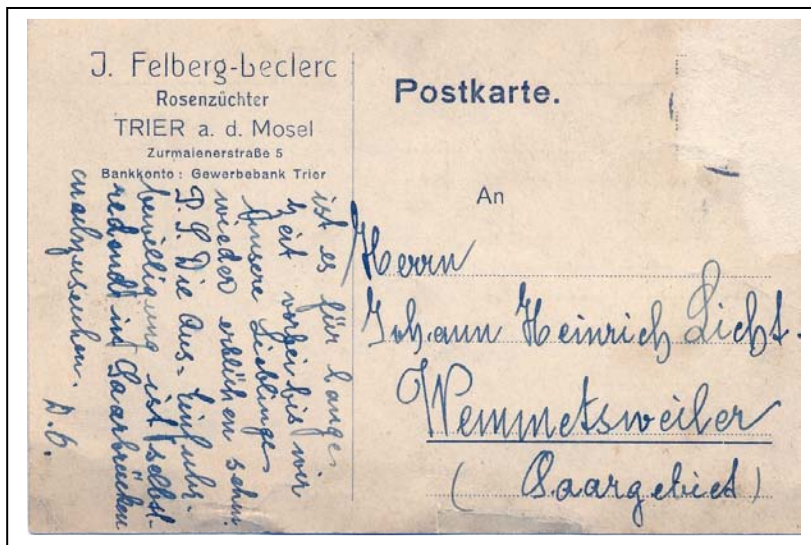 J. Felberg-Leclerc
Rosenzüchter
TRIER a. d. Mosel
Zurmaienerstraße 5
Bankkonto: Gewerbebank Trier
ist es für lange
Zeit vorbei bis wir
Unsere Lieblinge
wieder erblühen sehn.
P. S. Die Aus- Einfuhr-
bewilligung ist selbst-
redend in Saarbrücken
nachzusuchen. D. O.
Postkarte.
An
Herrn
Johann Heinrich Licht.
Wemmetsweiler
(Saargebiet)